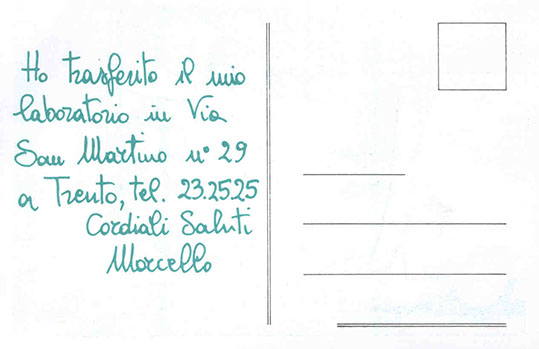 Ho trasferito il mio
laboratorio in Via
San Martino n° 29
a Trento, tel. 23.25.25
Cordiali Saluti
Marcello